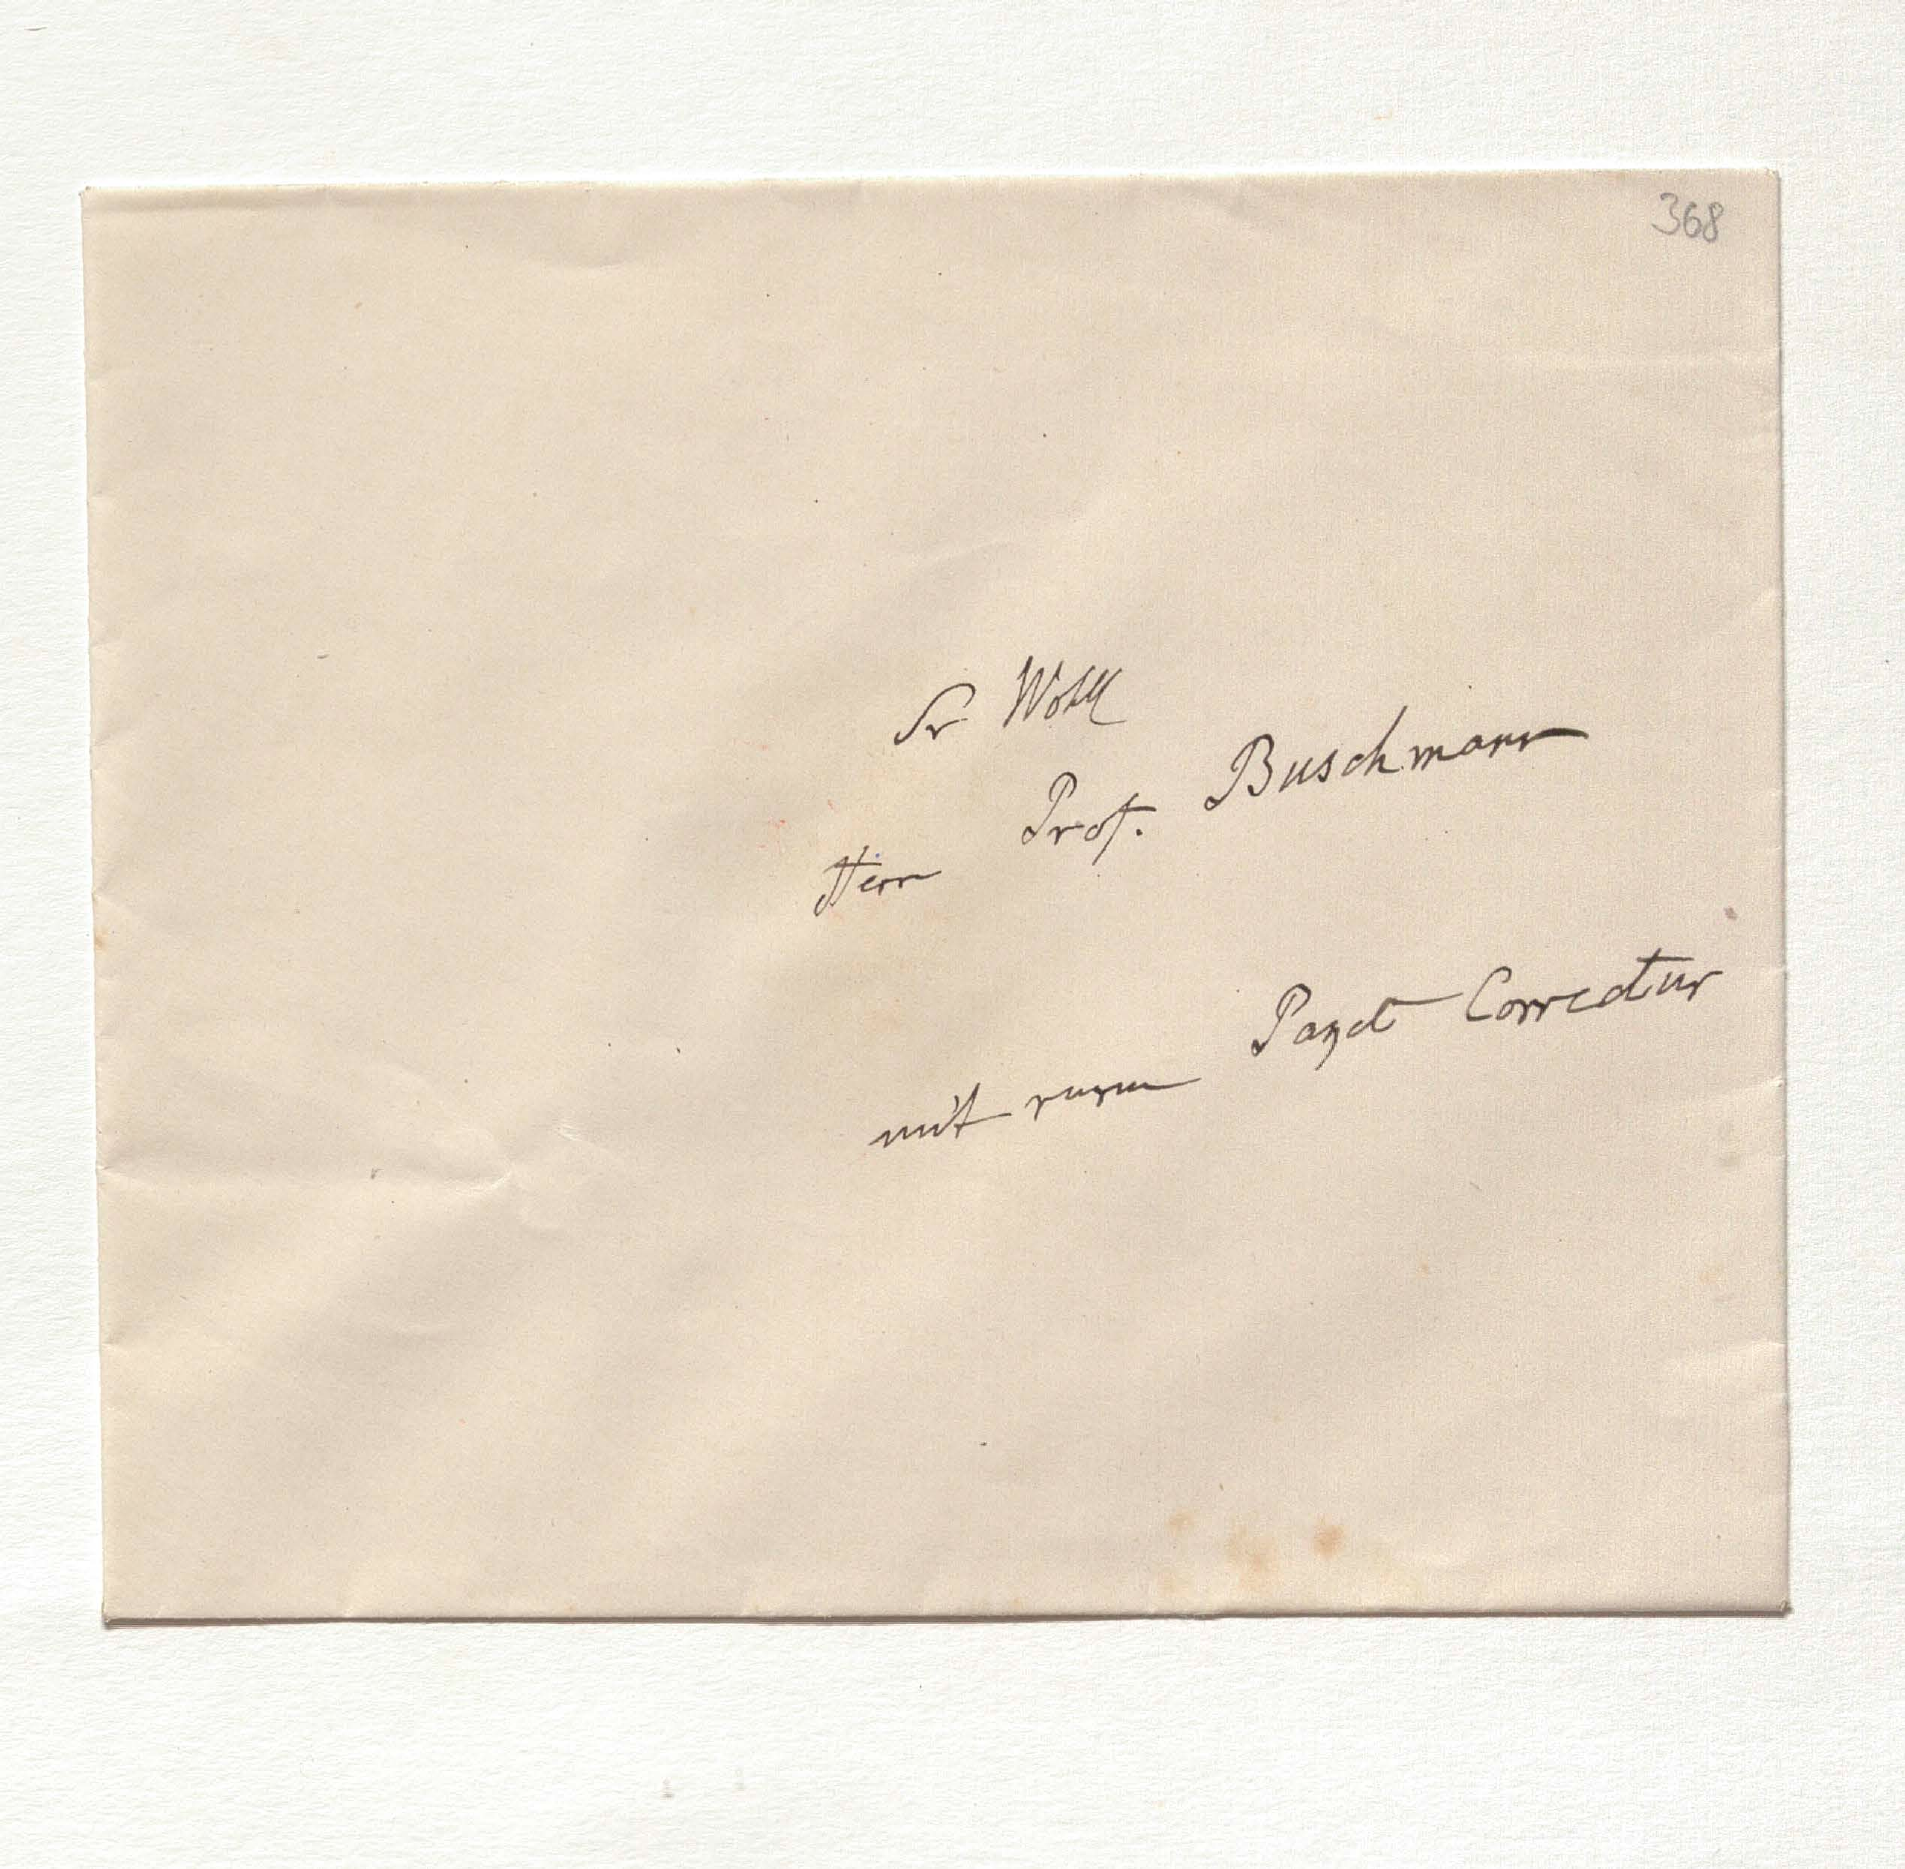 368
Sr Wohl
Herrn Prof. Buschmann
mit Paqet Correctur